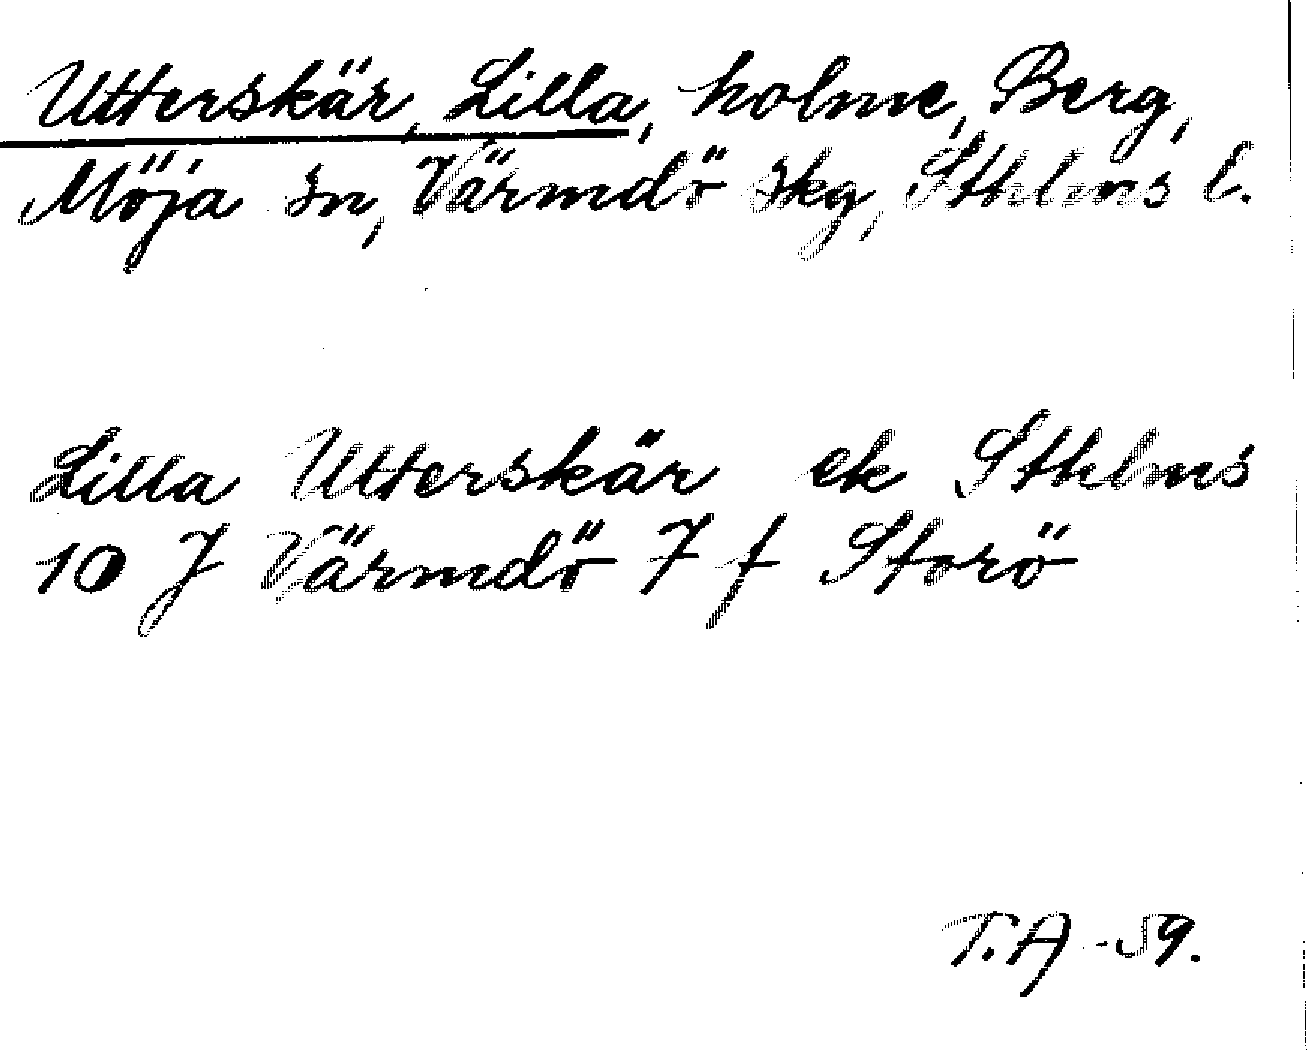 Utterskär, Lilla, holme, Berg,
Möja sn, Värmdö skg, Sthlms l.
Lilla Utterskär ek Sthlms
10 J Värmdö 7 f Storö
T.A -59.